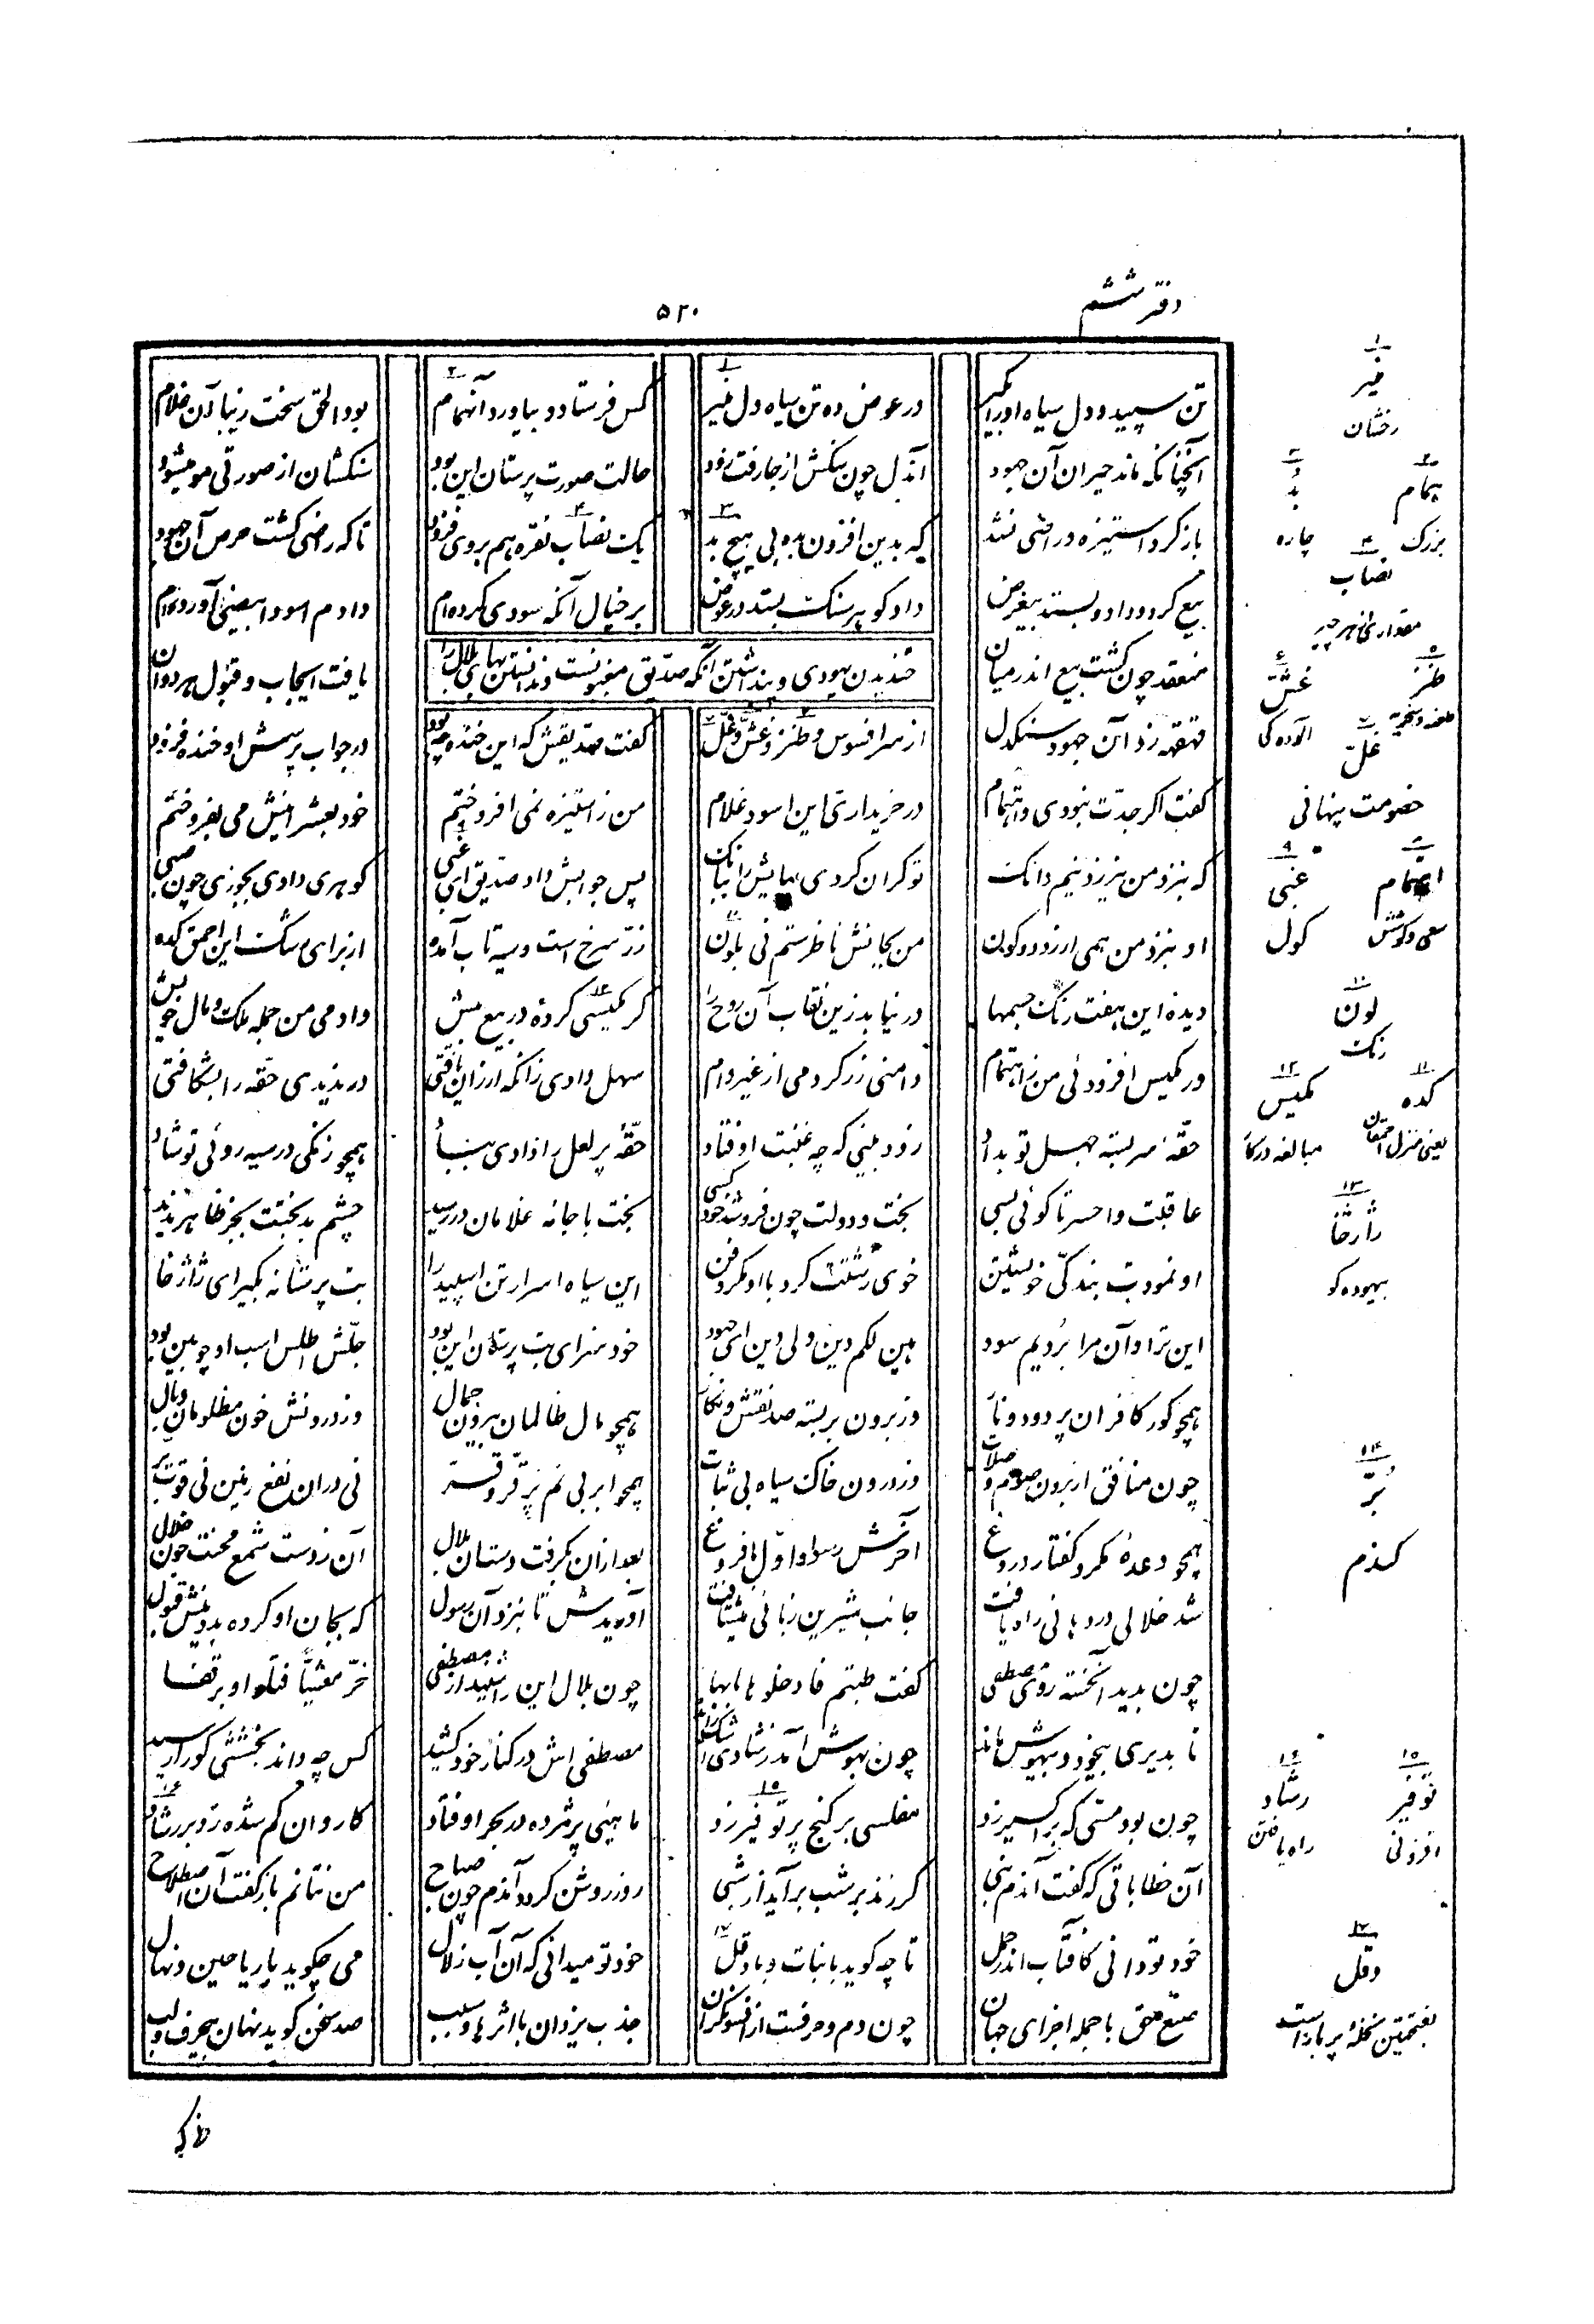 دفتر ششم
۵۲۰
تن سپید و دل سیاه او را بگیر در عوض ده تن سیاه دل منیر کس فرستاد و بیاورد آنهمام بود الحق سخت زیبا آن غلام
آنچنانکه ماند حیران آن جهود آندل چون سنگش از جا رفت زود حالت صورت پرستان این بود سنگشان از صورتی مومین شود
باز کرد استیزه و راضی نشد که بدین افزون بده بی هیچ بد یک نصاب نقره هم بر وی فزود تا که راضی گشت حرص آن جهود
بیع کرد و داد و بستد بیغرض داد گوهر سنگ بستد در عوض بر خیال آنکه سودی کرده‌ام دادم اسود ابیضی آورده‌ام
منعقد چون گشت بیع اندر میان یافت ایجاب و قبول هر دوان
خندیدن یهودی و پنداشتن آنکه صدیق مغبونست و ندانستن بهای بلال را
قهقهه زد آن جهود سنگدل از سر افسوس و طنز و غش و غل گفت صدیقش که این خنده چه بود در جواب پرسش او خنده فزود
گفت اگر جدت نبودی و اهتمام در خریداری این اسود غلام من ز استیزه نمی افروختم خود بعشر اینش می بفروختم
که بنزد من نیرزد نیم دانگ تو گران کردی بهایش را ببانگ پس جوابش داد صدیق ای غبی گوهری دادی بجوزی چون صبی
او بنزد من همی ارزد دو کون من بجانش ناظرستم نی بلون زر سرخ است و سیه تاب آمده از برای رشک این احمق کده
دیده این هفت رنگ جسمها در نیابد زین نقاب آن روح را گر مکیسی کرده در بیع بیش دادمی من جمله ملک و مال خویش
ور مکیس افزودئی من ز اهتمام دامنی زر کردمی از غیر وام سهل دادی زانکه ارزان یافتی در ندیدی حقه را نشکافتی
حقه سر بسته جهل تو بداد زود بینی که چه غبنت اوفتاد حقه پر لعل را دادی بباد همچو زنگی در سیه روئی تو شاد
عاقبت واحسرتا گوئی بسی بخت و دولت چون فروشد خود کسی بخت با جامه غلامان در رسید چشم بدبختت بجز ظاهر ندید
او نمودت بندگی خویشتن خوی زشتت کرد با او مکر و فن این سیاه اسرار تن اسپید را بت پرستانه بگیر ای ژاژخا
این ترا و آن مرا بردیم سود هین لکم دین ولی دین ای جهود خود سزای بت پرستان این بود جلش اطلس اسب او چوبین بود
همچو گور کافران پر دود و نار وز برون بر بسته صد نقش و نگار همچو مال ظالمان بیرون جمال وز درونش خون مظلومان وبال
چون منافق از برون صوم و صلات وز درون خاک سیاه بی ثبات همچو ابر بی نم پر قر و قر نی در آن نفع زمین نی قوت بر
همچو وعده مکر و گفتار دروغ آخرش رسوا و اول با فروغ بعد از آن بگرفت دستان بلال آن ز دست شمع محنت چون خلال
شد خلالی در دهانی راه یافت جانب شیرین زبانی میشتافت آوریدش تا بنزد آن رسول که بجان او کرده بد دینش قبول
چون بدید آنخسته روی مصطفی گفت طبتم فادخلوها بابها چون بلال این را شنید از مصطفی خر مغشیا فتاد او بر قفا
تا بدیری بیخود و بیهوش ماند چون بهوش آمد ز شادی اشک راند مصطفی اش در کنار خود کشید کس چه داند بخششی کو را رسید
چون بود مسی که بر اکسیر زد مفلسی بر گنج پر توفیر زد ماهیی پژمرده در بحر اوفتاد کاروان گم شده زد بر رشاد
آن خطاباتی که گفت آندم نبی گر زند بر شب برآید از شبی روز روشن گردد آندم چون صباح من نتانم باز گفت آن اصطلاح
خود تو دانی کافتاب اندر حمل تا چه گوید با نبات و با دقل خود تو میدانی که آن آب زلال می چگوید با ریاحین و نهال
صنع حق با جمله اجزای جهان چون دم و حرفست از افسونگران جذب یزدان با اثرها و سبب صد سخن گوید نهان بیحرف و لب
۱ منیر
رخشان
۲ همام
بزرگ
۳ بد
چاره
۴ نصاب
مقداری از هر چیز
۵ طنز
طعنه و سخریه
۶ غش
آلوده‌گی
۷ غل
خصومت پنهانی
۸ اهتمام
سعی و کوشش
۹ غبی
کول
۱۰ لون
رنگ
۱۱ کده
یعنی منزل احمقان
۱۲ مکیس
مبالغه در کار
۱۳ ژاژخا
بیهوده گو
۱۴ بر
گندم
۱۵ توفیر
افزونی
۱۶ رشاد
راه یافتن
۱۷ دقل
بفتحتین نخله پر بار است